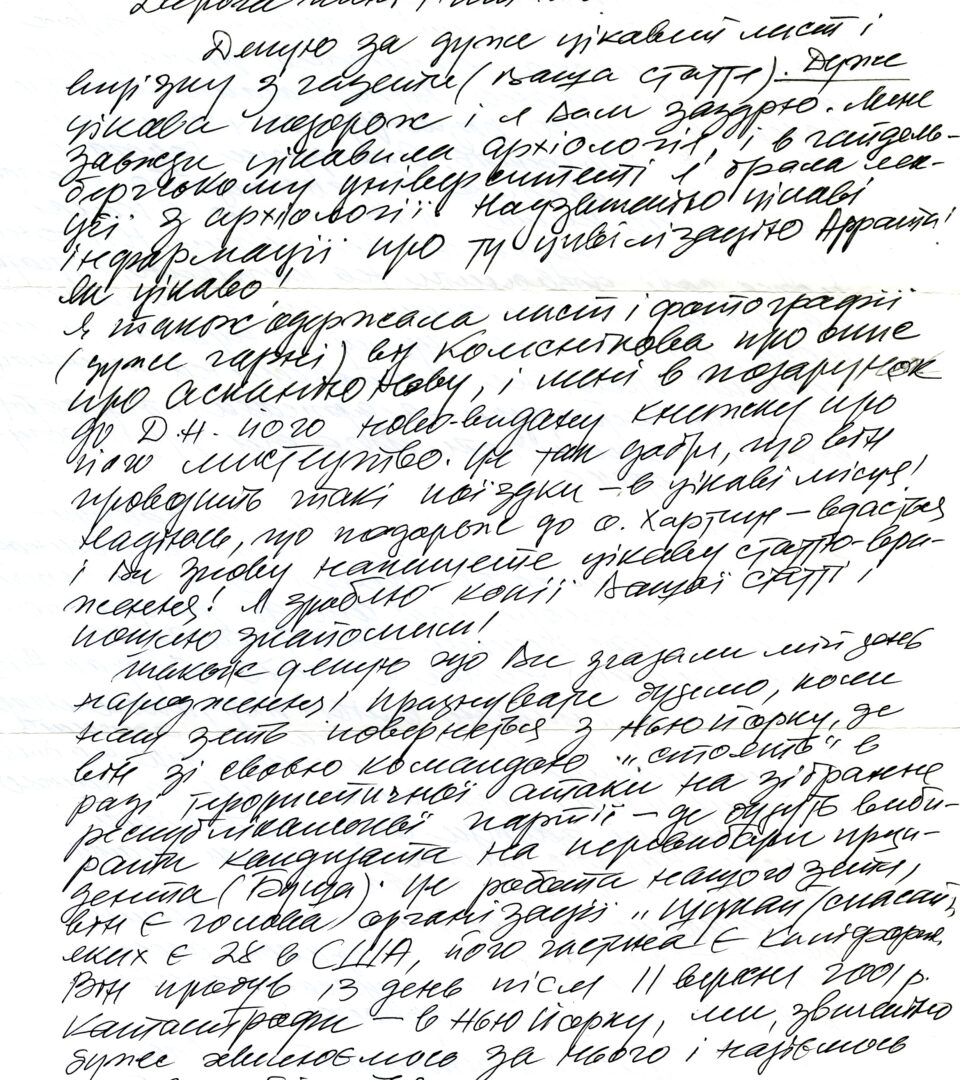 Дорога пані
Дякую за дуже цікавий лист і
вирізку з газети (Ваша стаття). Дуже
цікава подорож і я Вам заздрю. Мене
завжди цікавила архіологія, і в гайдель-
бергському університеті я брала лек-
ції з архіології. Надзвичайно цікаві
інформації про ту цивілізацію Аррати!
Як цікаво!
Я також одержала лист і фотографії
(дуже гарні) від Колєснікова про
про Асканію Нову, і мені в подарунок
до Д.Н. його ново-видану книжку про
його мистецтво. Це так добре, що він
проводить такі поїздки – в цікаві місця!
Надіюсь, що подорож до о. Хартиця – вдасться
і Ви знову напишете цікаву статтю-вра-
ження! Я зроблю копії Вашої статті,
пошлю знайомим!
Також дякую що Ви згадали мій день
народження! Празнувати будемо, коли
наш зять повернеться з Нью Йорку, де
він зі своєю командою „стоять" в
разі терористичної атаки на зібрання
республіканської партії – де будуть виби-
рати кандидата на перевибори прези-
дента (Буша). Це робота нашого зятя,
він є голова організації „Шукай/спасай",
яких є 28 в США, його частина є Каліфорнія.
Він пробув 13 день після 11 вересня 2001 р.
катастрофи – в Нью Йорку, ми, звичайно
дуже хвилюємось за нього і надіємось